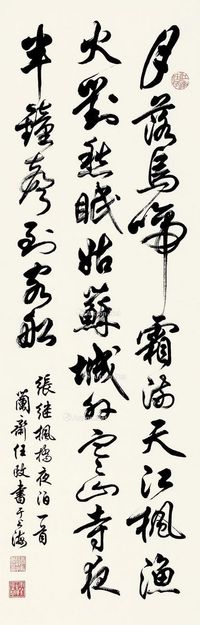 月落烏啼霜满天江楓漁
火對愁眠姑蘇城外寒山寺夜
半鐘聲到客船
張继楓橋夜泊一首
蘭齋任政書于上海